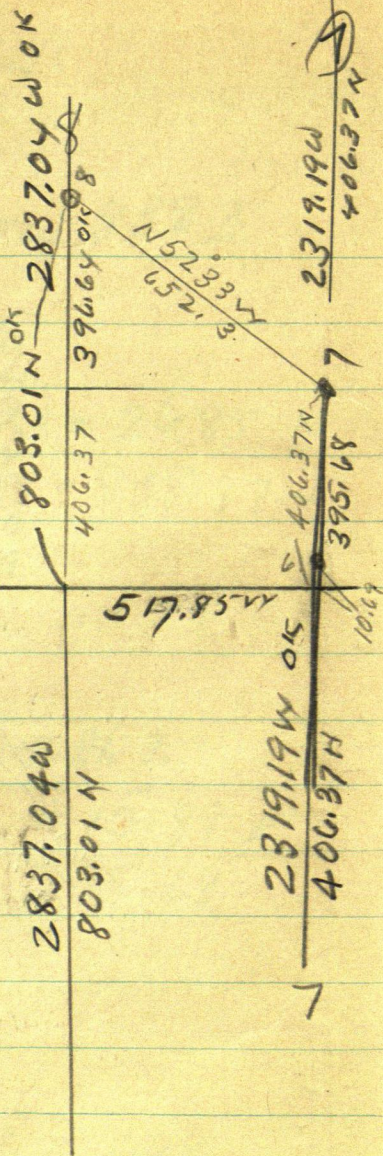 803.01 N OK — 2837.04 W OK
8
396.64 OK
406.37
N52°33'W
652.3
2319.19W
406.37N
7
406.37N
395.68
10.69
517.85 W
2837.04W
803.01 N
2319.19W OK
406.37N
7